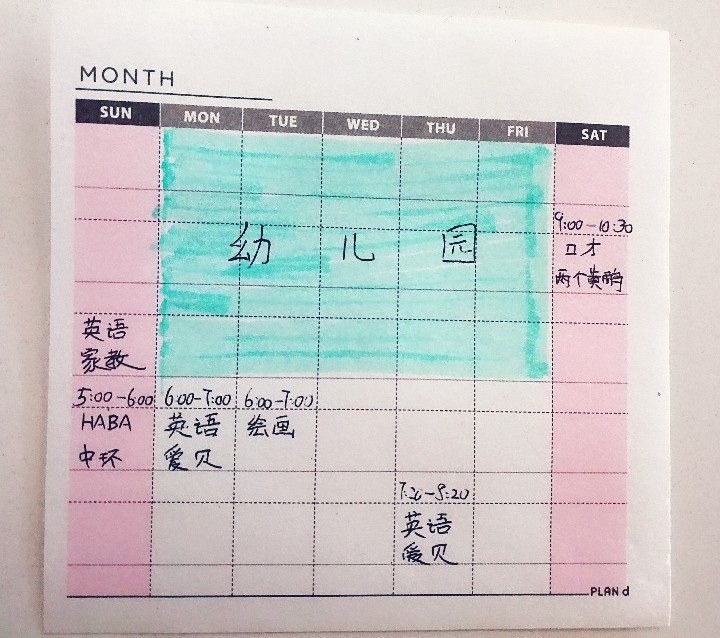 MONTH
SUN MON TUE WED THU FRI SAT
幼儿园
9:00-10:30
口才
两个黄鹂
英语
家教
5:00-6:00 6:00-7:00 6:00-7:00
HABA 英语 绘画
中环 爱贝
7:20-8:20
英语
爱贝
PLAN d